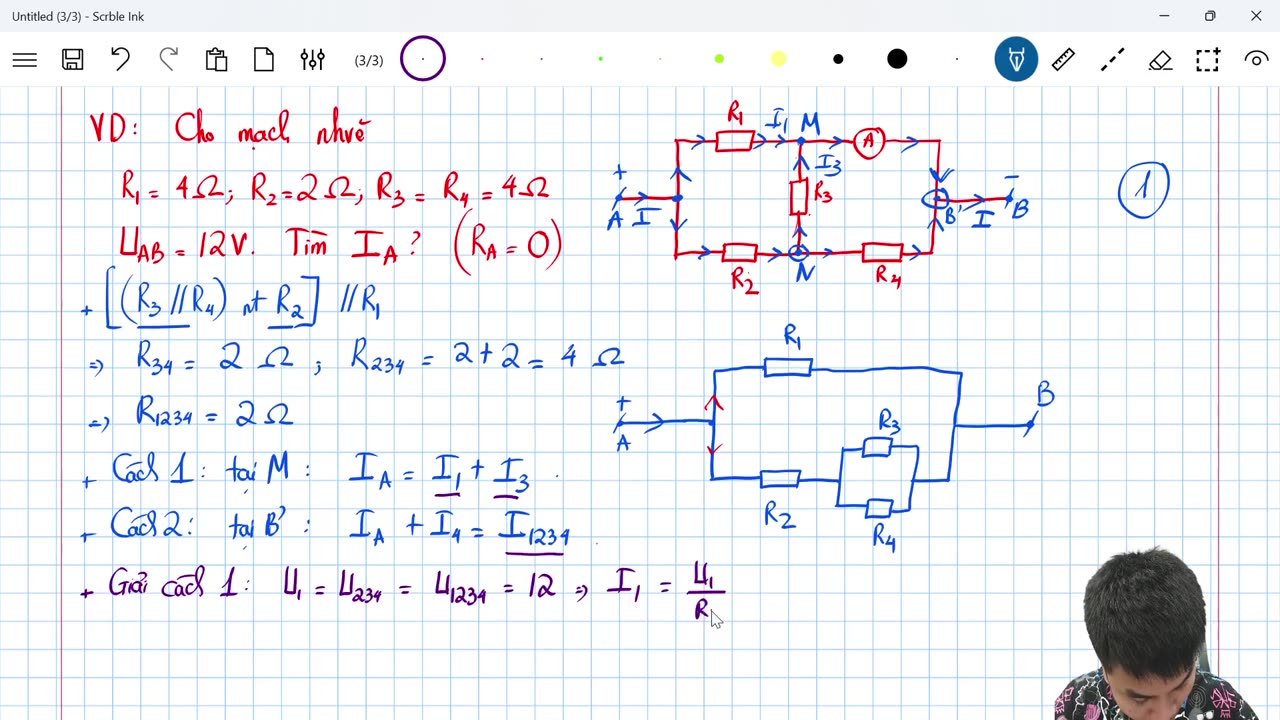 Untitled (3/3) - Scrble Ink
(3/3)
VD: Cho mạch như vẽ
R₁ = 4Ω; R₂ = 2Ω; R₃ = R₄ = 4Ω
U_AB = 12V. Tìm I_A? (R_A = 0)
+ [(R₃ // R₄) nt R₂] // R₁
=> R₃₄ = 2 Ω ; R₂₃₄ = 2 + 2 = 4 Ω
=> R₁₂₃₄ = 2Ω
+ Cách 1: tại M: I_A = I₁ + I₃
+ Cách 2: tại B': I_A + I₄ = I₁₂₃₄
+ Giải cách 1: U₁ = U₂₃₄ = U₁₂₃₄ = 12 => I₁ = U₁ / R
R₁ I₁ M A
+ I₃ -
A I R₃ B' I B
R₂ N R₄
1
R₁
+ B
A R₃
R₂ R₄